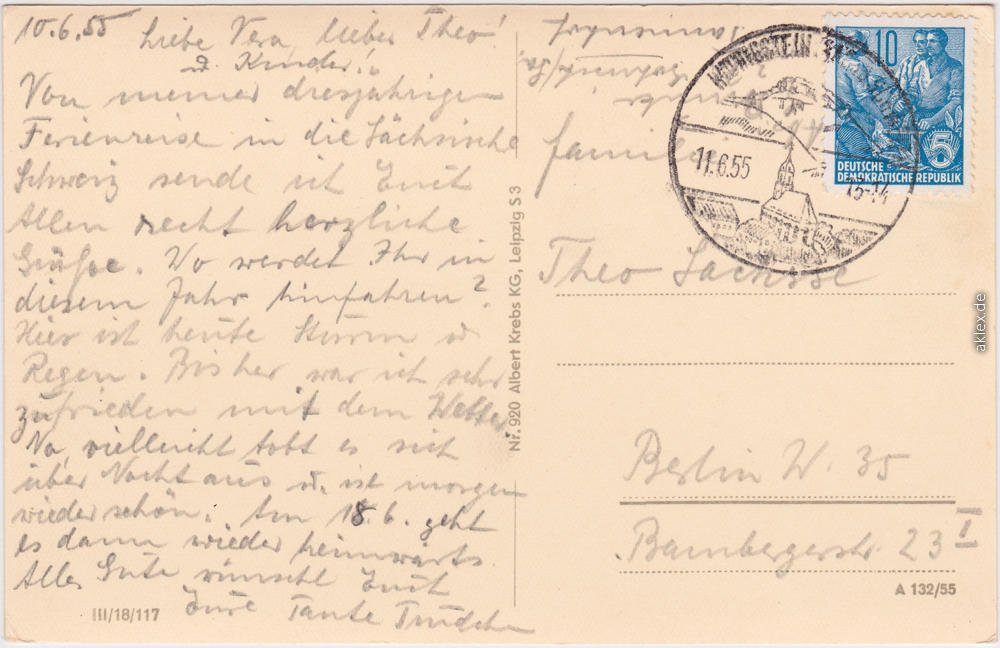 10.6.55
Liebe Vera, lieber Theo!
u. Kinder!
Von meiner diesjährigen
Ferienreise in die Sächsische
Schweiz sende ich Euch
Allen recht herzliche
Grüße. Wo werdet Ihr in
diesem Jahr hinfahren?
Hier ist heute Sturm u.
Regen. Bisher war ich sehr
zufrieden mit dem Wetter.
Na, vielleicht tobt es sich
über Nacht aus u. ist morgen
wieder schön. Am 18.6. geht
es dann wieder heimwärts.
Alles Gute wünscht Euch
Eure Tante Trudchen
III/18/117
Nr. 920 Albert Krebs KG, Leipzig S 3
11.6.55
10
DEUTSCHE
DEMOKRATISCHE REPUBLIK
5
Familie
Theo Sachsse
Berlin W. 35
Bambergerstr. 23 I
A 132/55
aklex.de